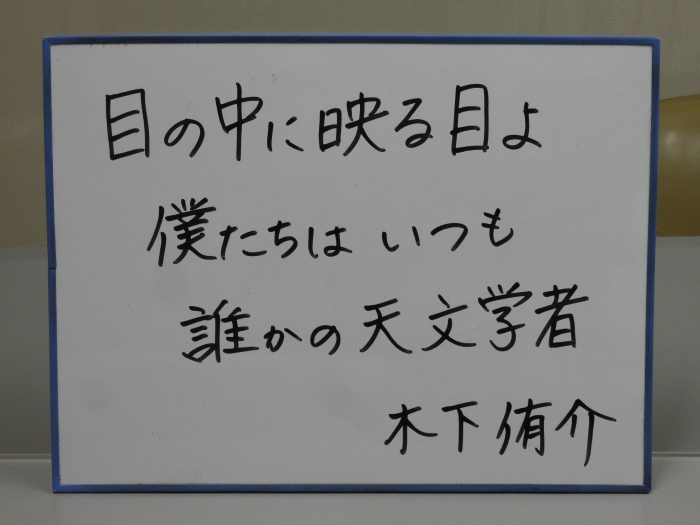 目の中に映る目よ
僕たちは いつも
誰かの天文学者
木下侑介